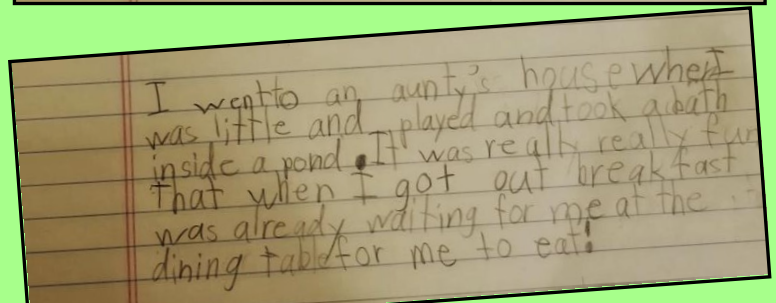 I went to an aunty's house when I
was little and played and took a bath
inside a pond. It was really really fun
that when I got out breakfast
was already waiting for me at the
dining table for me to eat!